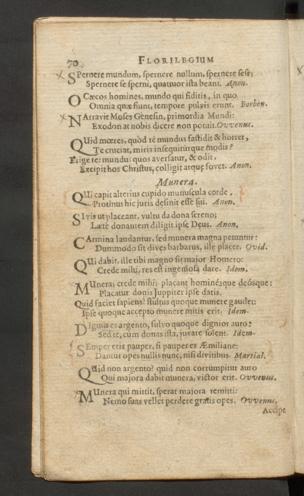 70 FLORILEGIUM
SPernere mundum, spernere nullum, spernere sese;
Spernere se sperni, quatuor ista beant. Anon.
O Cæcos homines, mundo qui fiditis, in quo
Omnia quæ fiunt, tempore pulvis erunt. Borbon.
NArravit Moses Genesin, primordia Mundi:
Exodon at nobis dicere non potuit. Ovvenus.
QUid mœres, quòd te mundus fastidit & horret,
Te cruciat, miris insequiturque modis?
Frigete mundus quos aversatur, & odit,
Excipit hos Christus, colligit atque fovet. Anon.
Munera.
QUi capit alterius cupido munuscula corde,
Protinus hic juris desinit esse sui. Anon.
SI vis ut placeant, vultu da dona sereno;
Lætè donautem diligit ipse Deus. Anon.
CArmina laudantur, sed munera magna petuntur:
Dummodo sit dives barbarus, ille placet. Ovid.
QUi dabit, ille tibi magno sit major Homero:
Crede mihi, res est ingeniosa dare. Idem.
MUnera, crede mihi, placant hominésque deósque:
Placatur donis Juppiter ipse datis.
Quid faciet sapiens? stultus quoque munere gaudet:
Ipse quoque accepto munere mitis erit. Idem.
DIgnus es argento, fulvo quoque dignior auro:
Sed te, cum donus ista, juvare solent. Idem.
SEmper eris pauper, si pauper es Æmiliane:
Dantur opes nullis nunc, nisi divitibus. Martial.
QUid non argento? quid non corrumpitur auro
Qui majora dabit munera, victor erit. Ovvenus.
MUnera qui mittit, sperat majora remitti:
Nemo suas vellet perdere gratis opes. Ovvenus.
Accipe